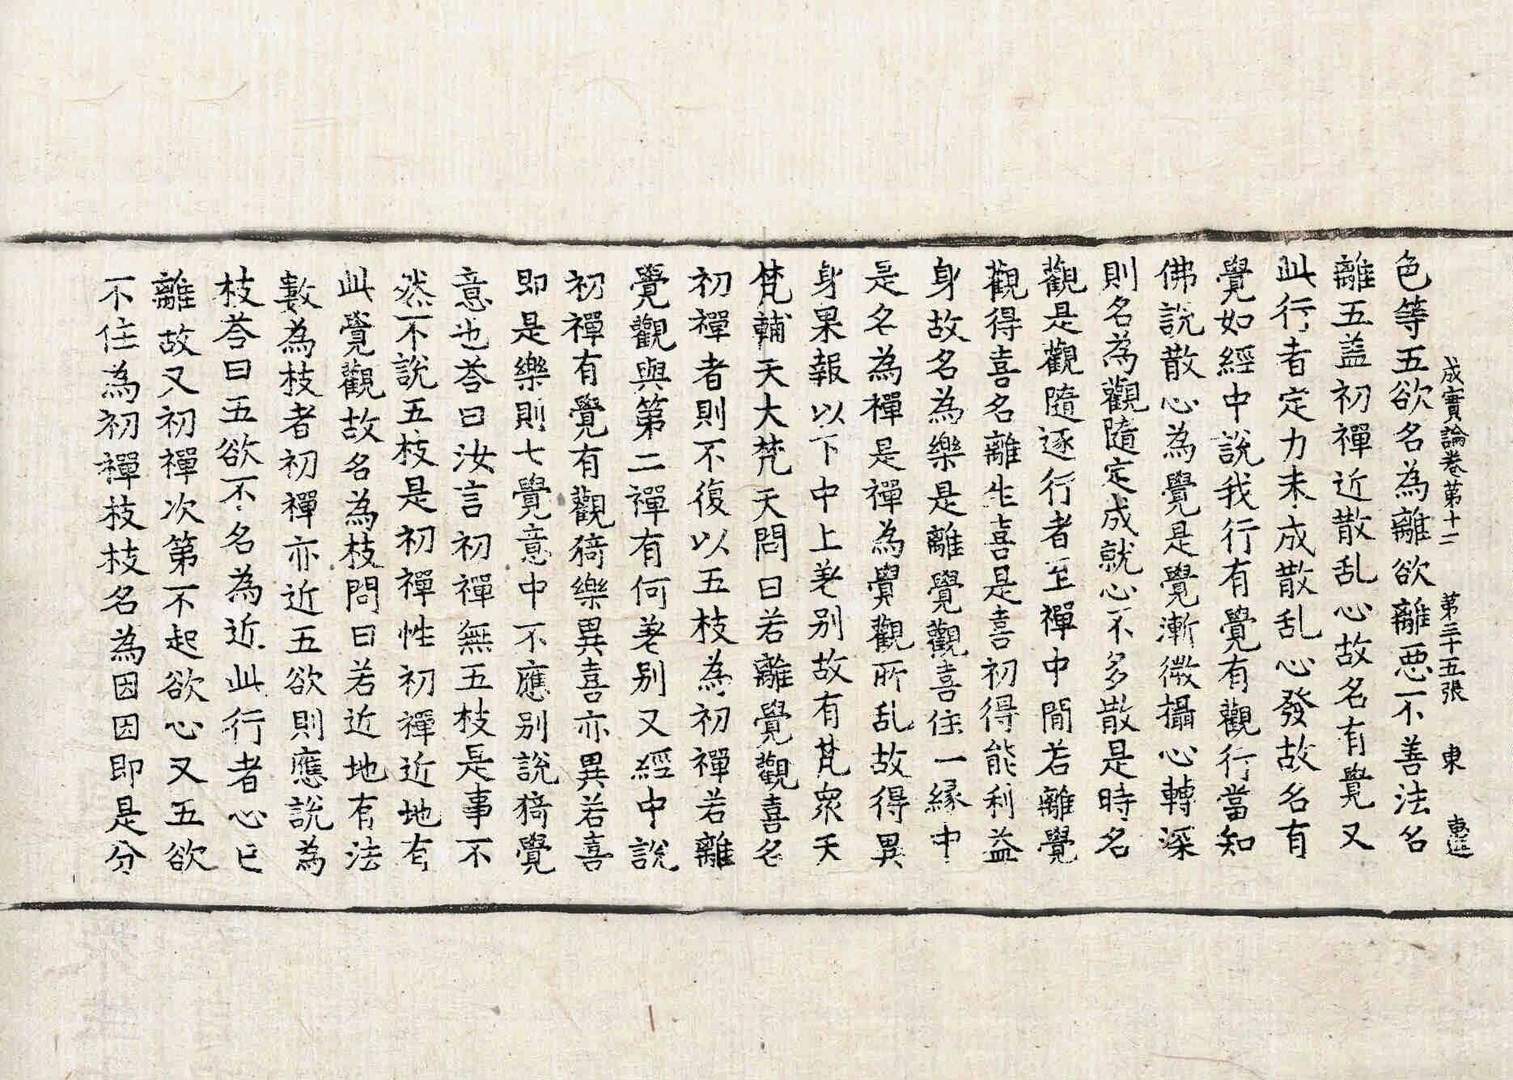 成實論卷第十二 第三十五張 東
色等五欲名為離欲離惡不善法名
離五盖初禪近散乱心故名有覺又
此行者定力未成散乱心發故名有
覺如經中說我行有覺有觀行當知
佛說散心為覺是覺漸微攝心轉深
則名為觀隨定成就心不多散是時名
觀是觀隨逐行者至禪中間若離覺
觀得喜名離生喜是喜初得能利益
身故名為樂是離覺觀喜住一緣中
是名為禪是禪為覺觀所乱故得異
身果報以下中上差別故有梵衆天
梵輔天大梵天問曰若離覺觀喜名
初禪者則不復以五枝為初禪若離
覺觀與第二禪有何差別又經中說
初禪有覺有觀猗樂異喜亦異若喜
即是樂則七覺意中不應別說猗覺
意也荅曰汝言初禪無五枝是事不
然不說五枝是初禪性初禪近地有
此覺觀故名為枝問曰若近地有法
數為枝者初禪亦近五欲則應說為
枝荅曰五欲不名為近此行者心已
離故又初禪次第不起欲心又五欲
不住為初禪枝枝名為因因即是分